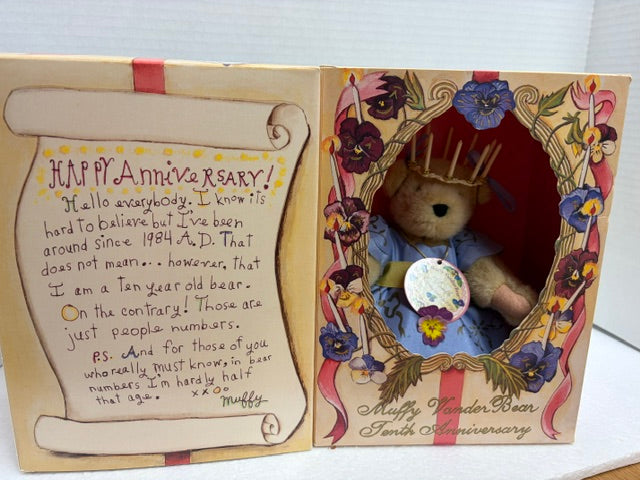 HAPPY Anniversary!
Hello everybody. I know its
hard to believe but I've been
around since 1984 A.D. That
does not mean... however, that
I am a Ten year old bear.
On the contrary! Those are
just people numbers.
P.S. And for those of you
who really must know, in bear
numbers I'm hardly half
that age. xxoo
Muffy
Muffy VanderBear
Tenth Anniversary